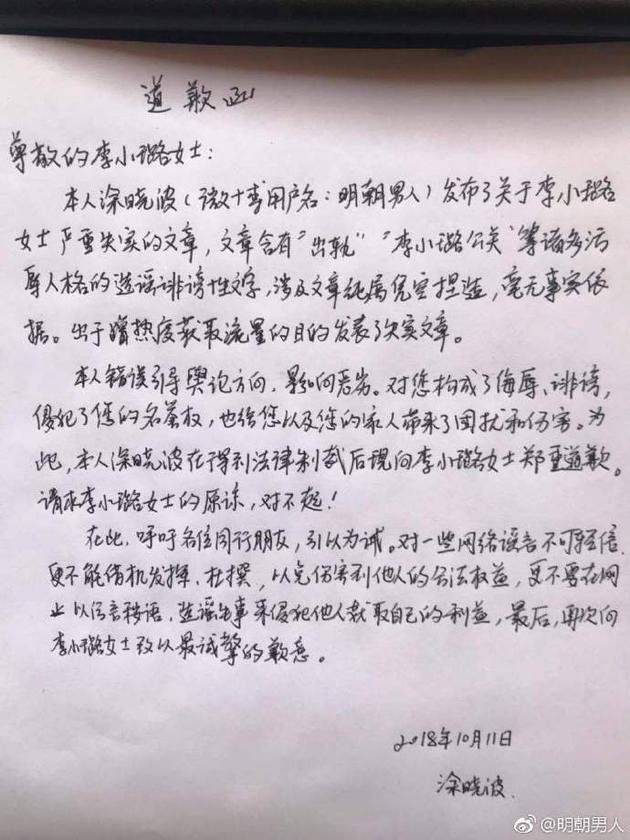 道歉函
尊敬的李小璐女士：
本人涂晓波（微博用户名：明朝男人）发布了关于李小璐
女士严重失实的文章，文章含有“出轨”“李小璐公关”等诸多污
辱人格的造谣诽谤性文字，涉及文章纯属凭空捏造，毫无事实依
据。出于蹭热度获取流量的目的发表了次实文章。
本人错误引导舆论方向，影响恶劣。对您构成了侮辱、诽谤，
侵犯了您的名誉权，也给您以及您的家人带来了困扰和伤害。为
此，本人涂晓波在得到法律制裁后现向李小璐女士郑重道歉。
请求李小璐女士的原谅，对不起！
在此，呼吁各位同行朋友，引以为诫。对一些网络谣言不可轻信，
更不能借机发挥、杜撰，以免伤害到他人的合法权益，更不要在网
上以污言秽语，造谣生事来侵犯他人获取自己的利益，最后，再次向
李小璐女士致以最诚挚的歉意。
2018年10月11日
涂晓波
@明朝男人